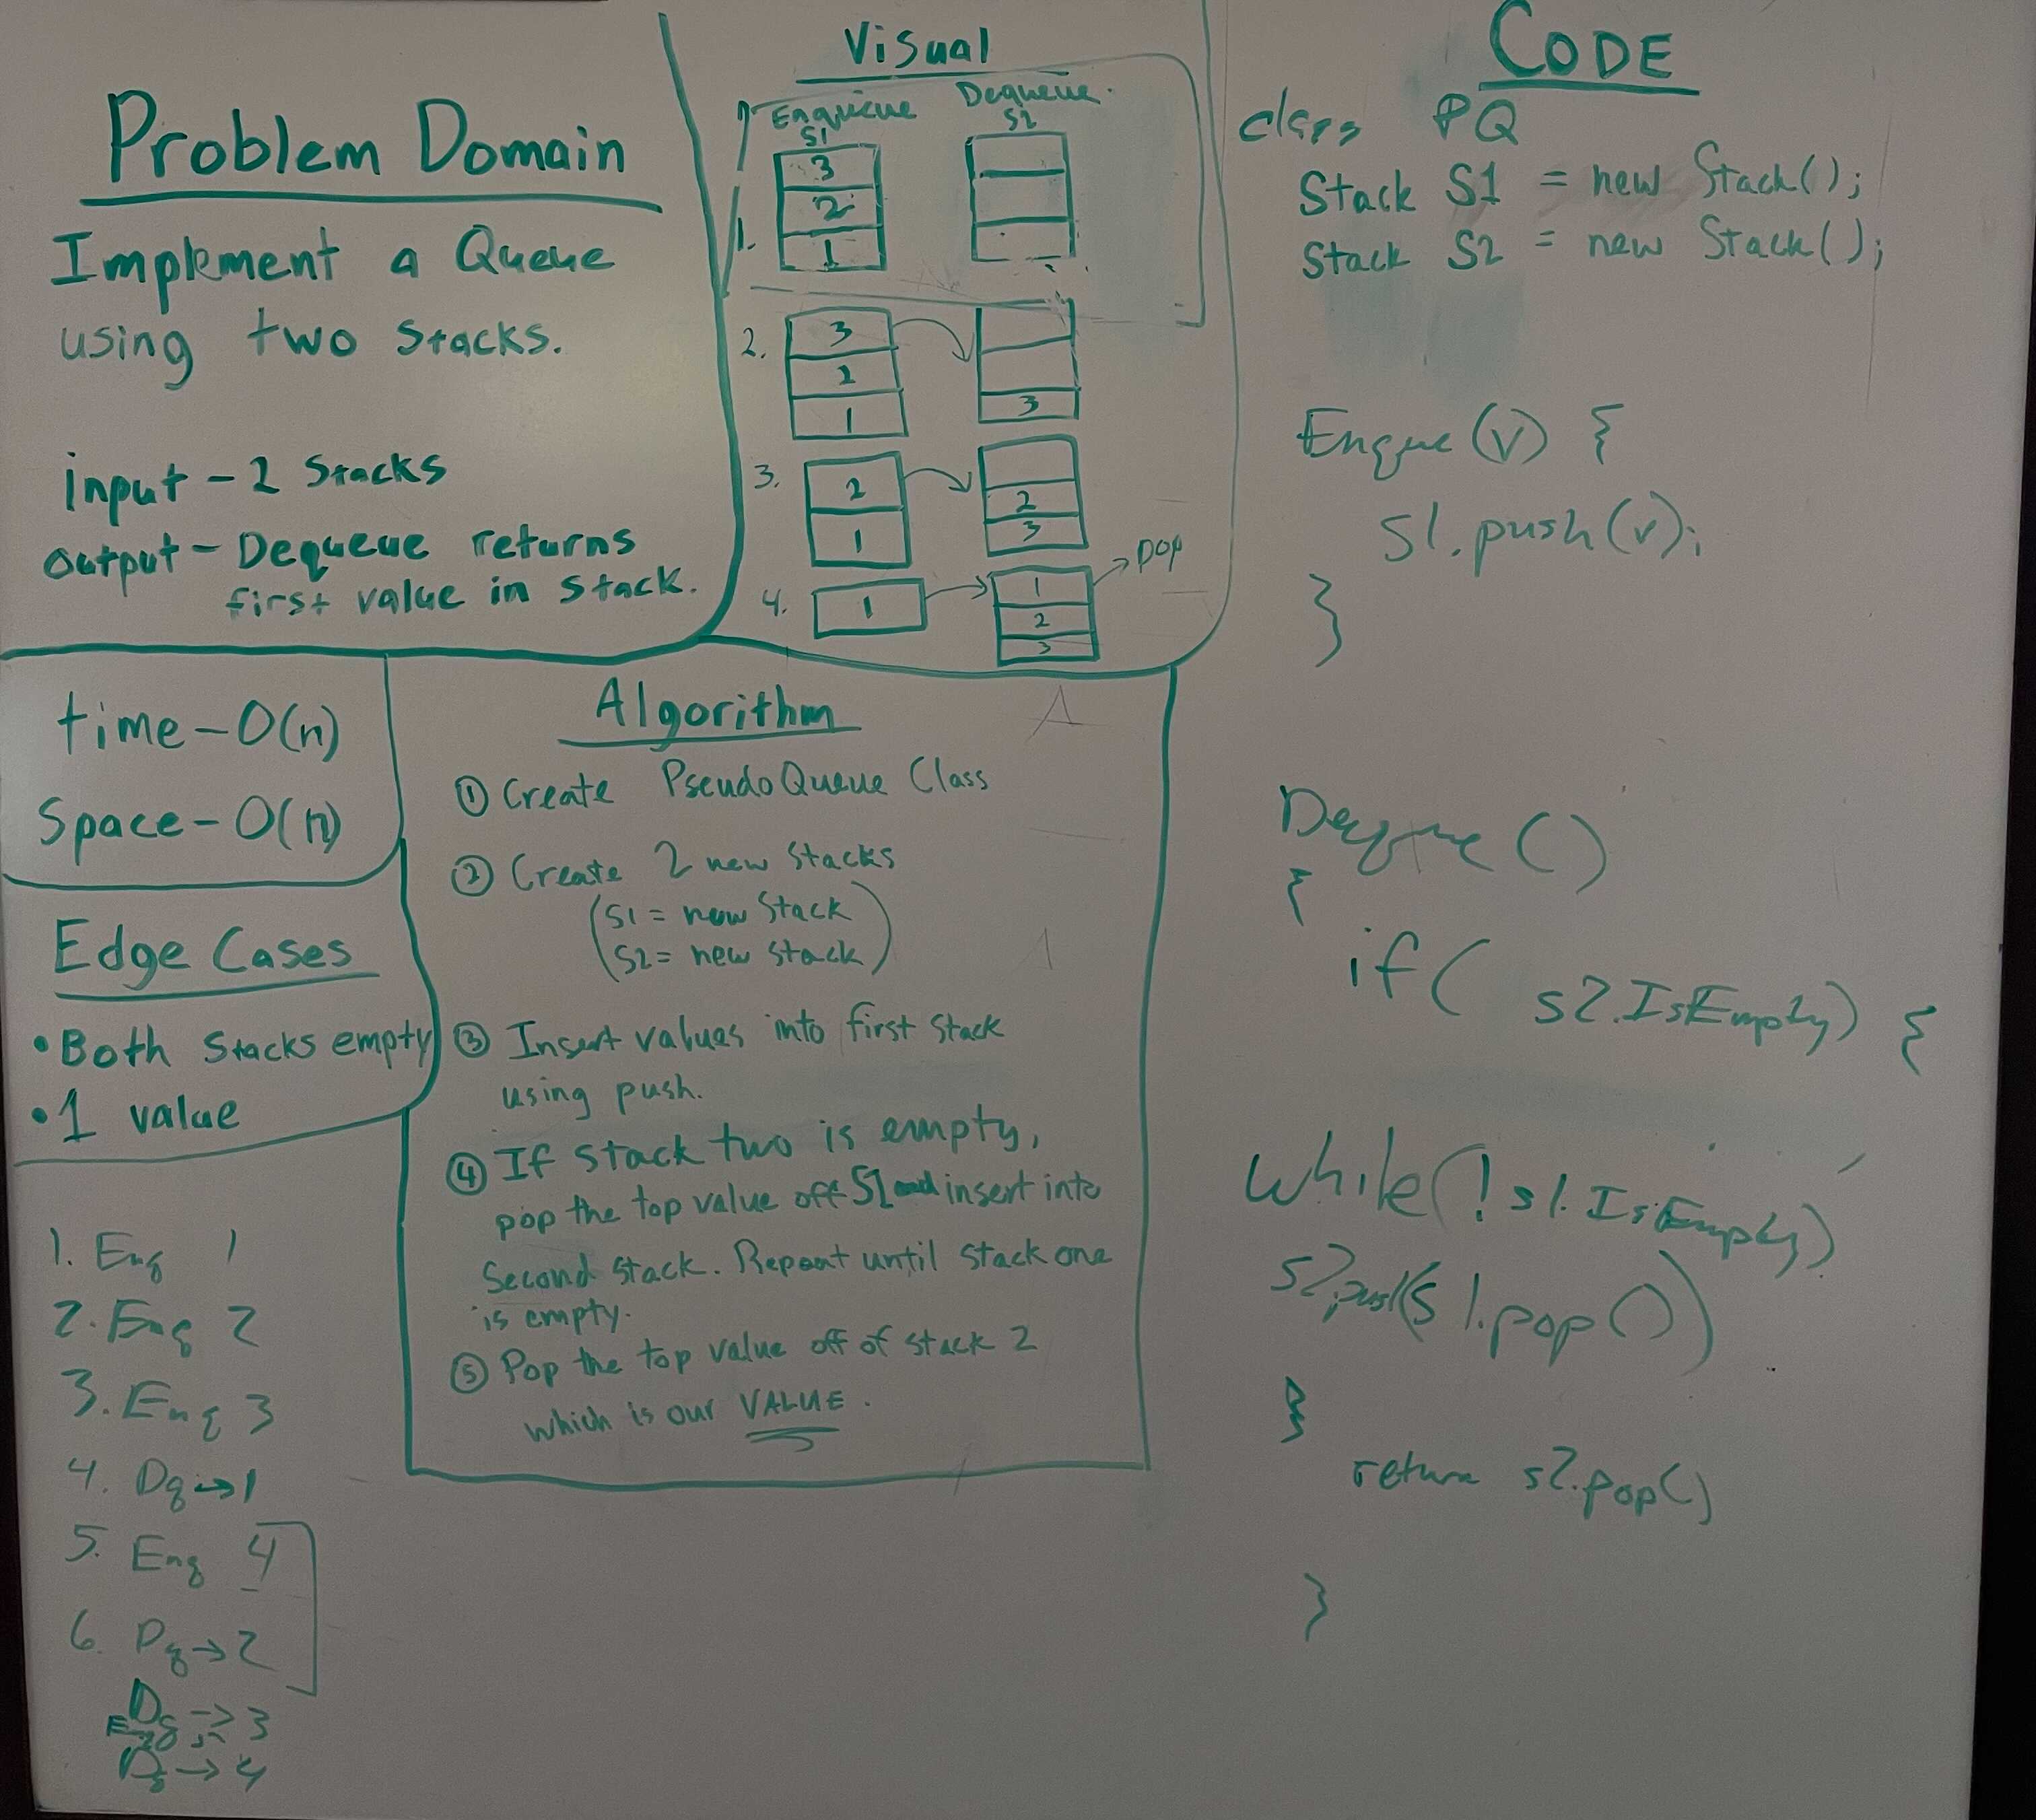 Problem Domain
Implement a Queue
using two Stacks.
input - 2 Stacks
output - Dequeue returns
first value in stack.
Visual
Enqueue Dequeue
S1 S2
3
2
1. 1
2. 3
2
1 3
3. 2 2
1 3
pop
4. 1 1
2
3
time - O(n)
Space - O(n)
Edge Cases
• Both Stacks empty
• 1 value
1. Enq 1
2. Enq 2
3. Enq 3
4. Dq → 1
5. Enq 4
6. Dq → 2
Dq → 3
Dq → 4
Algorithm
① Create PseudoQueue Class
② Create 2 new Stacks
(S1 = new Stack
S2 = new Stack)
③ Insert values into first Stack
using push.
④ If Stack two is empty,
pop the top value off S1 and insert into
Second Stack. Repeat until stack one
is empty.
⑤ Pop the top value off of stack 2
which is our VALUE.
CODE
class PQ
Stack S1 = new Stack();
Stack S2 = new Stack();
Enque(v) {
S1.push(v);
}
Deque()
{
if( s2.IsEmpty) {
while(!s1.IsEmpty)
s2.push(s1.pop())
}
return s2.pop()
}